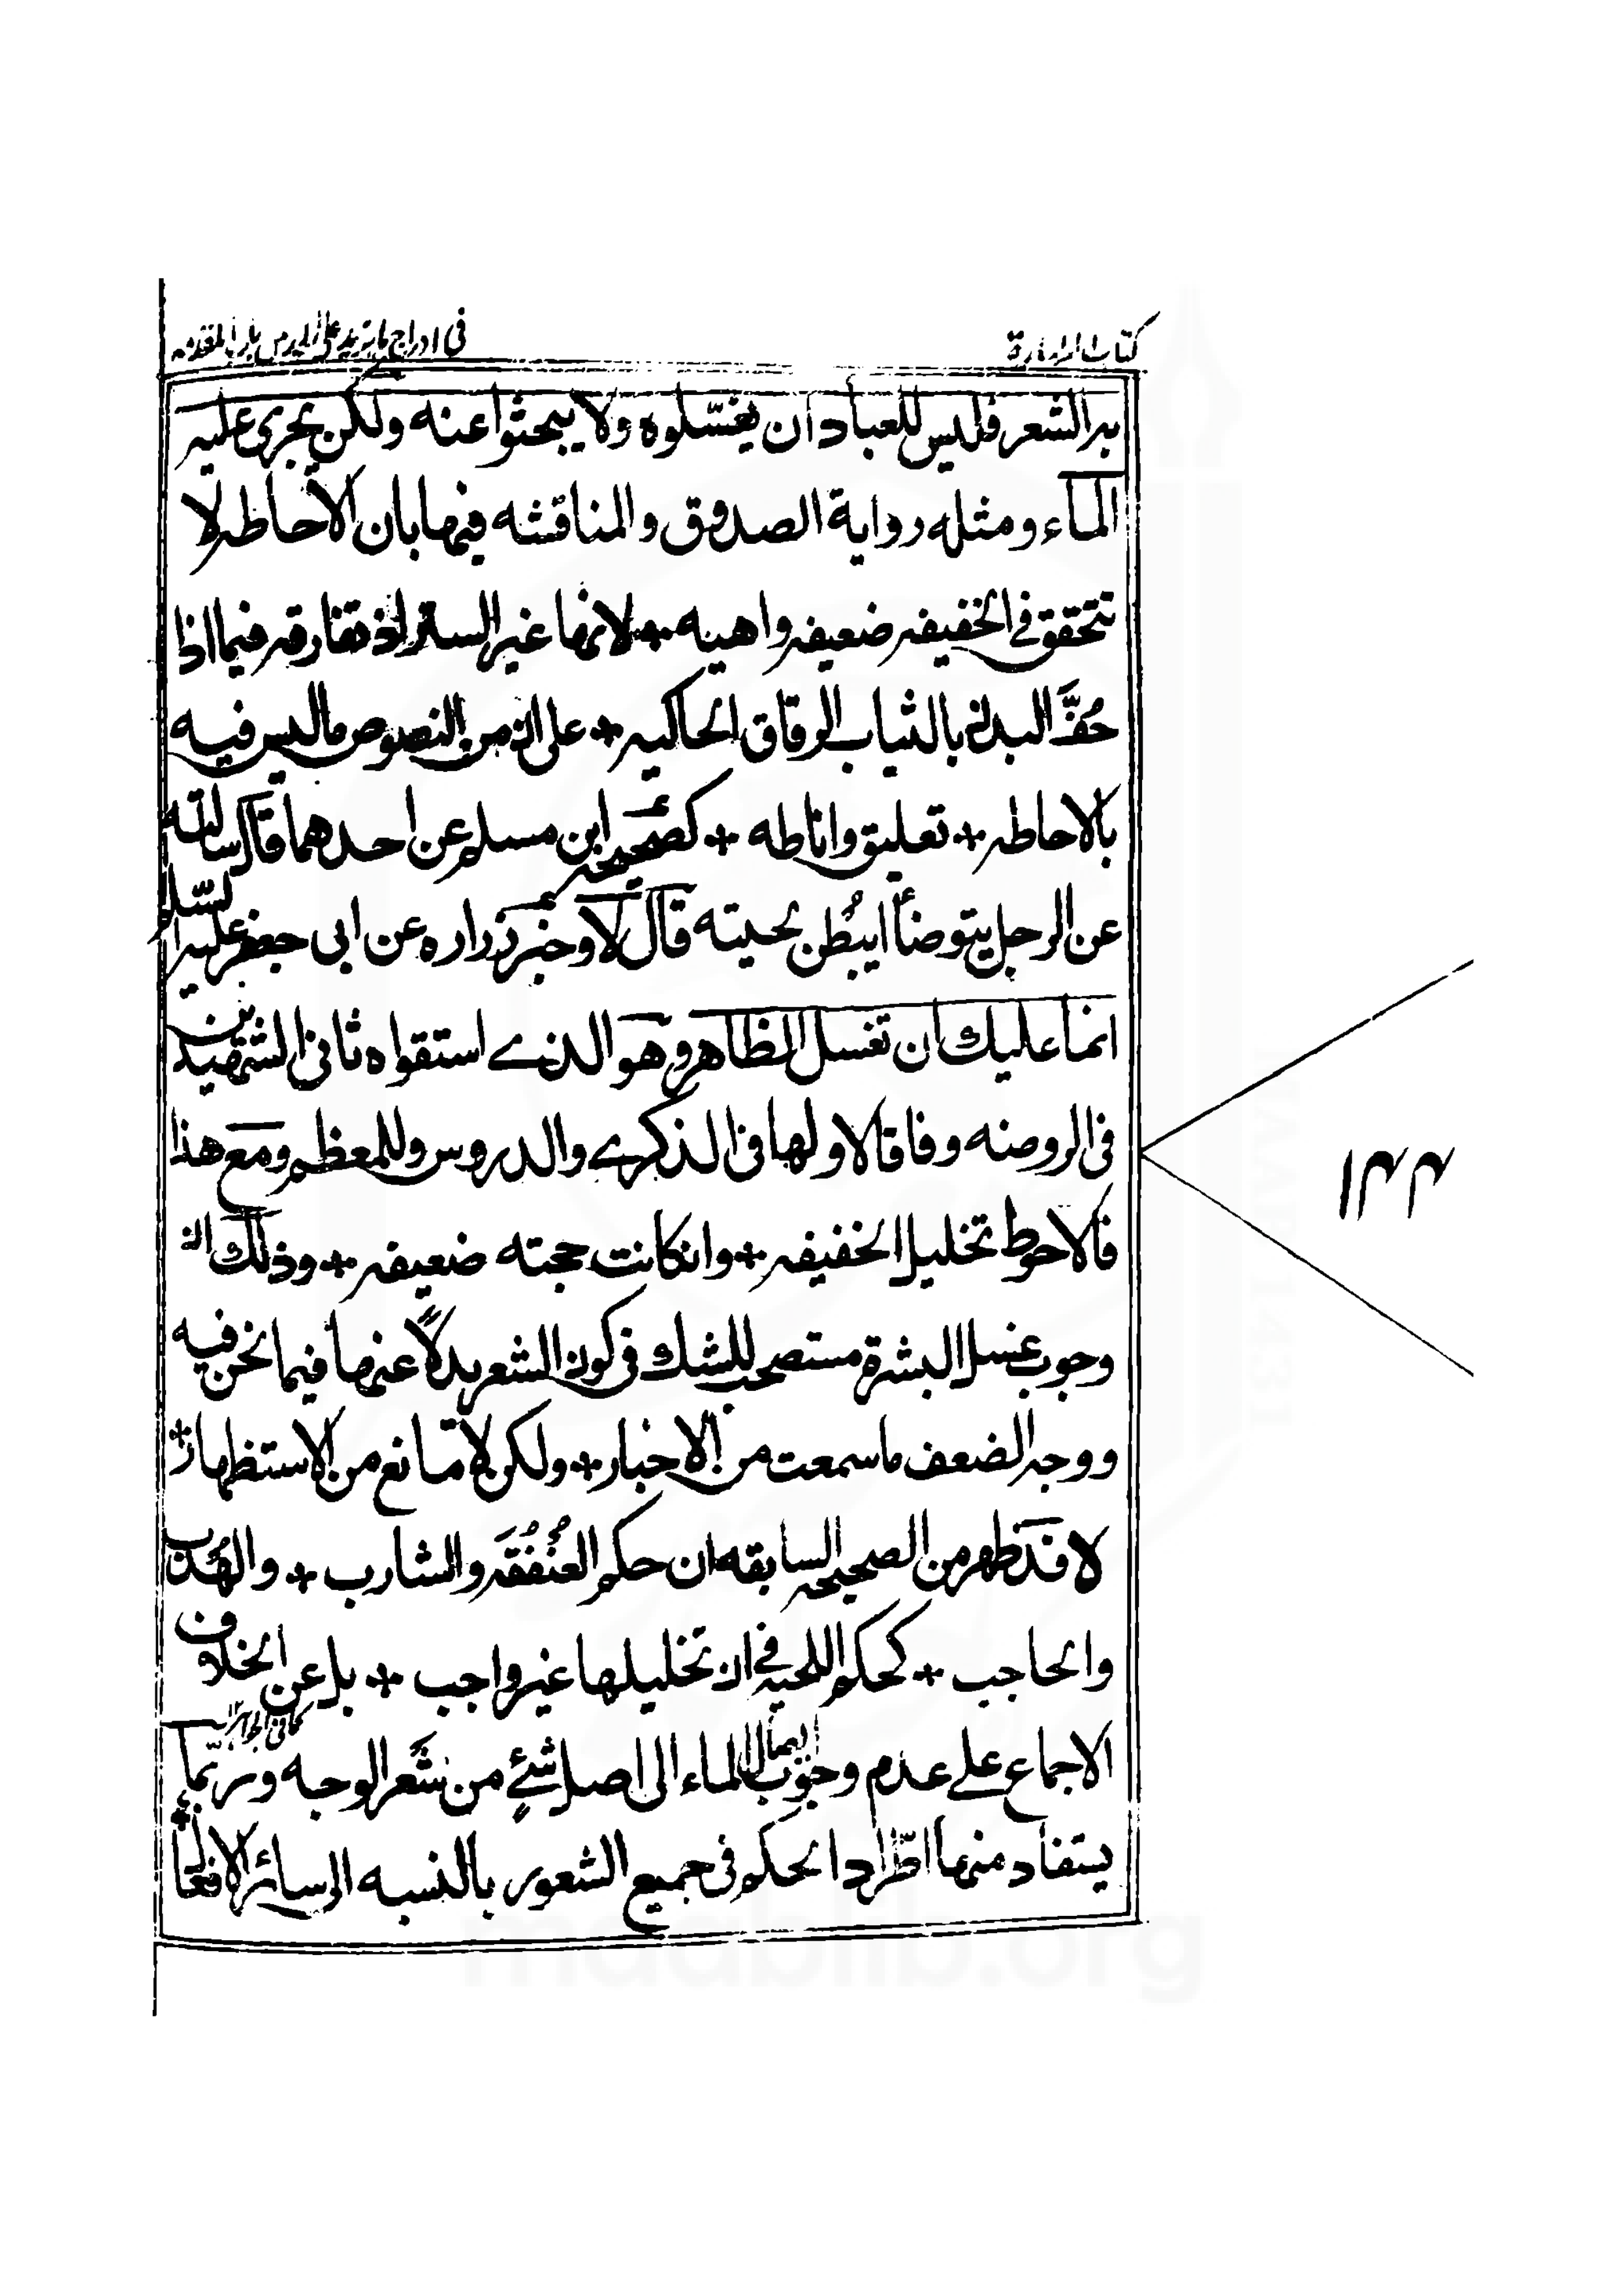 كتاب الطهارة
في ادراج ما يزيد على باب المقدمه
به الشعر فليس للعباد ان يغسّلوه ولا يبحثوا عنه ولكن يجرى عليه
الماء ومثله رواية الصدوق والمناقشه فيها بان الاحاطه لا
تتحقق في الخفيفه ضعيفه واهيه * لانها غير الستر اذ تفارقه فيما اذا
حُفَّ البدن بالثياب الرقاق الحاكيه * على ان من النصوص ما ليس فيه
بالاحاطه * تعليق واناطه * كصحيحة ابن مسلم عن احدهما قال سالته
عن الرجل يتوضأ ايبطُن لحيته قال لا وخبر زراره عن ابى جعفر عليه السّلم
انما عليك ان تغسل الظاهر وهو الذے استقواه ثاني الشهيدين
فى الروضه وفاقا لاولهما فى الذكرے والدروس وللمعظم ومع هذا
فالاحوط تخليل الخفيفه * وانكانت حجته ضعيفه * وذلك ان
وجوب غسل البشرة مستصحب للشك فى كون الشعر بدلاً عنها فيما نحن فيه
ووجه الضعف ما سمعت من الاخبار * ولكن لا مانع من الاستظهار *
لا وقد ظهر من الصحيحه السابقه ان حكم العُنفُقَه والشارب * والهُدب
والحاجب * كحكم اللحيه في ان تخليلها غير واجب * بل عن الخلاف
الاجماع على عدم وجوب ايصال الماء الى اصل شئٍ من شَعر الوجه وربّما
يستفاد منها اطّراد الحكم فى جميع الشعور بالنسبه الى سائر الافعال *
١٢٢
maablib.org